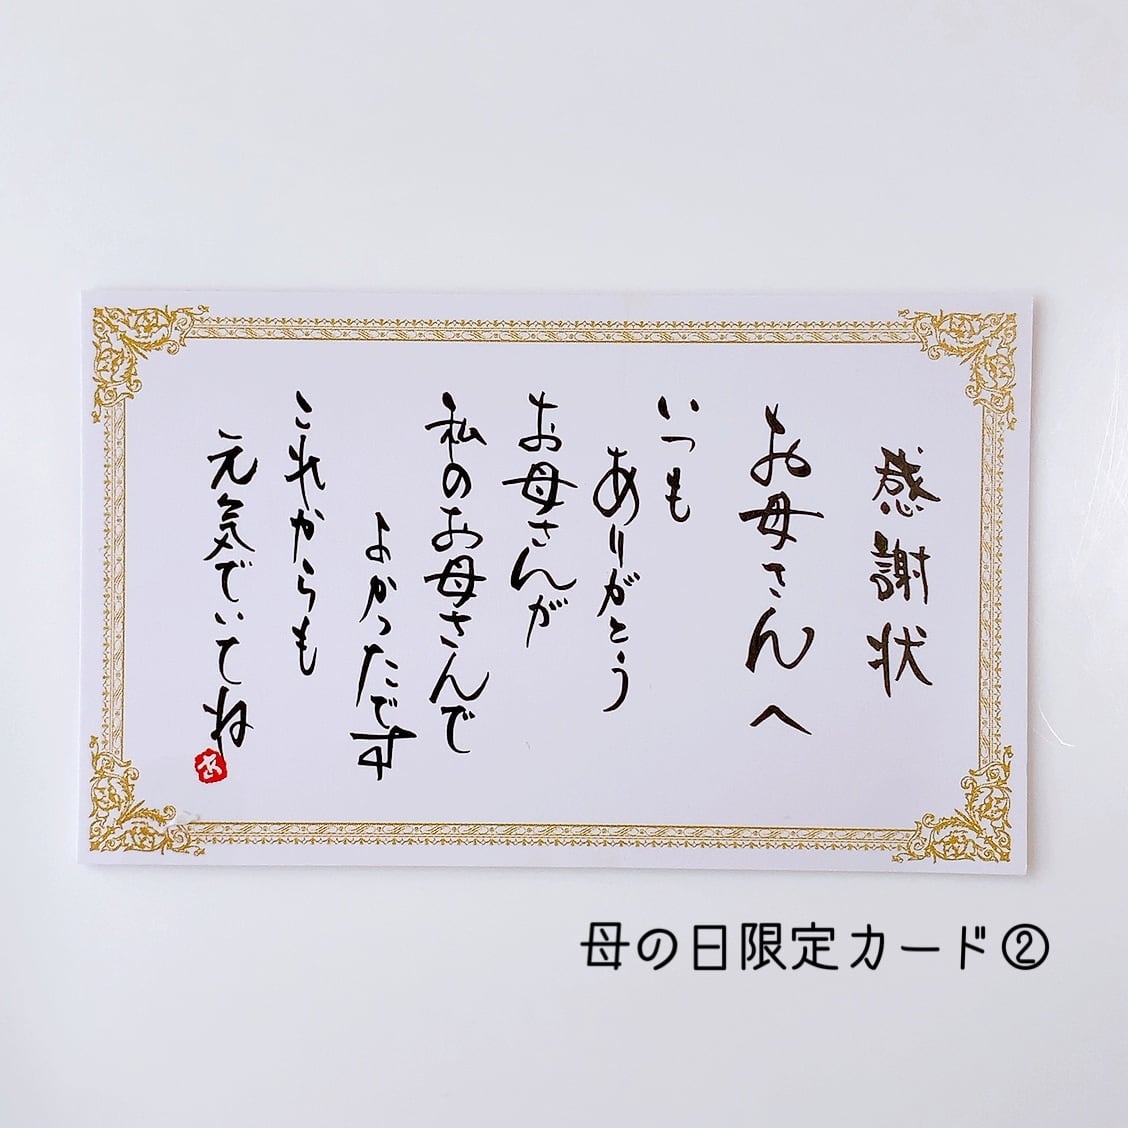 感謝状
お母さんへ
いつも
ありがとう
お母さんが
私のお母さんで
よかったです
これからも
元気でいてね
あ
母の日限定カード②